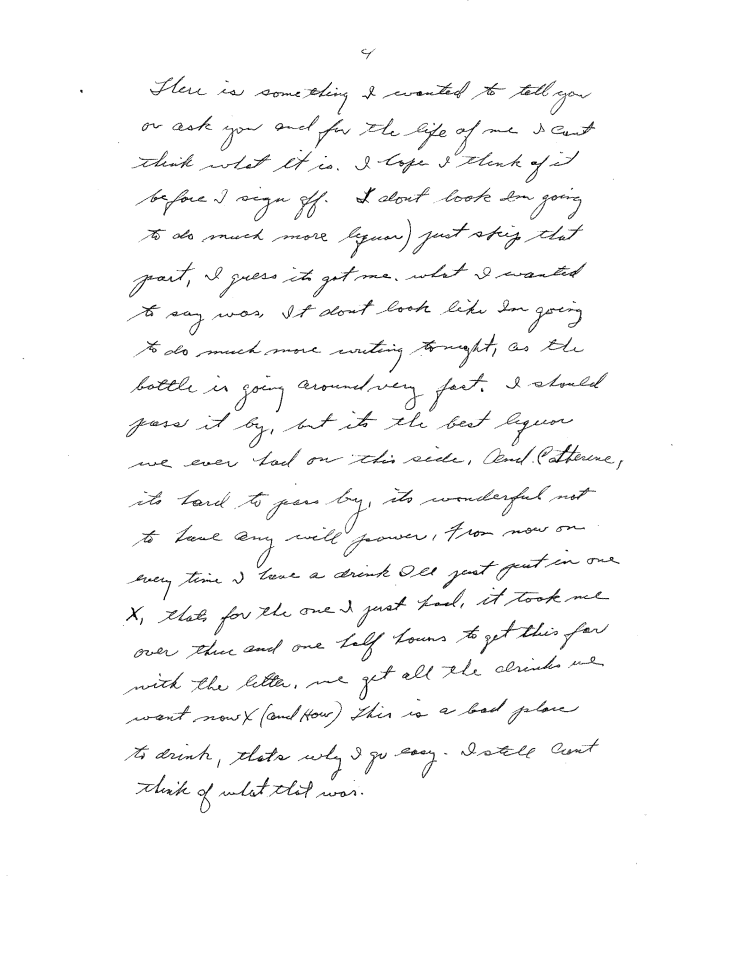 4
There is something I wanted to tell you
or ask you and for the life of me I cant
think what it is. I hope I think of it
before I sign off. I dont look Im going
to do much more liquor) just skip that
part, I guess its got me. what I wanted
to say was, It dont look like Im going
to do much more writing tonight, as the
bottle is going around very fast. I should
pass it by, but its the best liquor
we ever had on this side. And Catherine,
its hard to pass by, its wonderful not
to have any will power. From now on
every time I have a drink Ill just put in one
X, thats for the one I just had, it took me
over three and one half hours to get this far
with the letter. we get all the drinks we
want now X (and How) This is a bad place
to drink, thats why I go easy. I still cant
think of what that was.